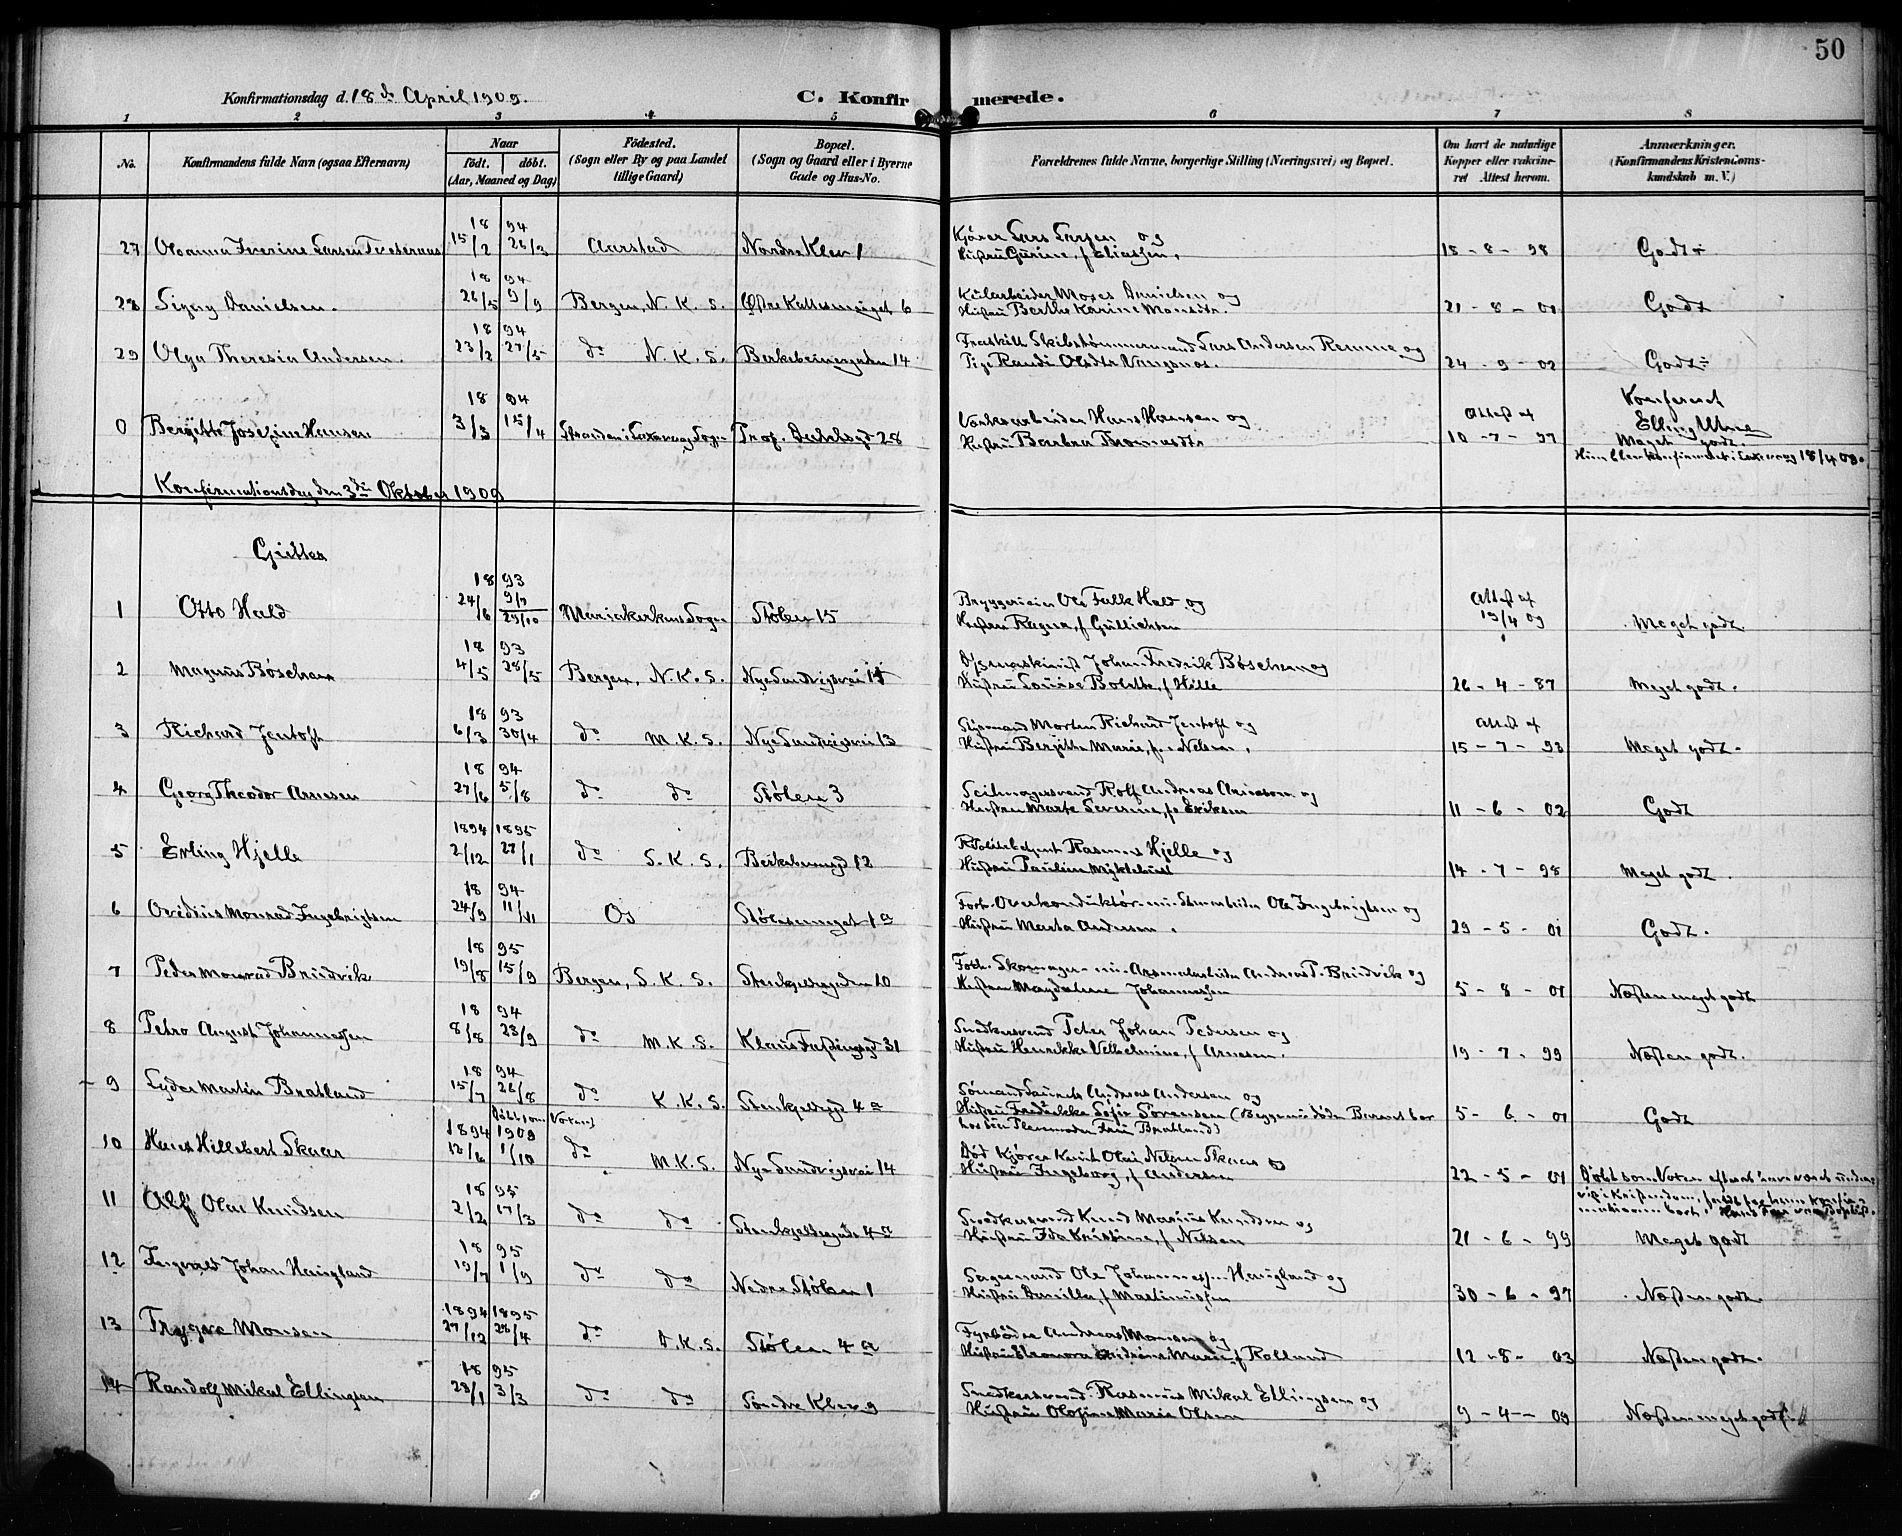 50
Konfirmationsdag d. 18de April 1909.
C. Konfirmerede.
1 2 3 4 5 6 7 8
No.
Konfirmandens fulde Navn (ogsaa Efternavn)
Naar
födt. döbt.
(Aar, Maaned og Dag)
Födested.
(Sogn eller By og paa Landet
tillige Gaard)
Bopæl.
(Sogn og Gaard eller i Byerne
Gade og Hus-No.
Forældrenes fulde Navne, borgerlige Stilling (Næringsvei) og Bopæl.
Om havt de naturlige
Kopper eller vaccine-
ret Attest herom.
Anmærkninger.
(Konfirmandens Kristendoms-
kundskab m. V.)
18 94
27 Larsen 15/2 26/3 Aarstad Nordre Klev 1 Kjører Lars Larsen og
Hustru Gurine, f Eliassen. 15 - 8 - 98 Godt÷
18 94
28 Signy Danielsen. 26/5 9/9 Bergen, N. K. S. Øvre 6 Moses Danielsen og
Hustru Berthe Karine Monsdtr. 21 - 8 - 01 Godt
18 94
29 Olga Theresia Andersen. 23/2 27/5 do N. K. S. Berkebeinergaden 14 Fraskilt Skibstømmermand Lars Andersen Remme og
Pige Randi Olsdtr Vangsnes. 24 - 9 - 02 Godt÷
18 94
0 Bergitte Josefine Hansen 3/3 15/4 Sogn Prof. Dahlsgd 28 Hans Hansen og
Hustru Barbra Thomasdtr Attest af
10 - 7 - 97 Konfereret
Elling Utne
Meget godt.
Hun blev konfirmeret i 18/4 09.
Konfirmationsdag den 3die Oktober 1909
Gutter
18 93
1 Otto Hald 24/6 9/7 29/10 Mariakirkens Sogn Stølen 15 Bryggerieier Ole Falk Hald og
Hustru Ragna, f Gullichsen Attest af
19/4 09 Meget godt
18 93
2 Magnus Bøschen 4/5 28/5 Bergen, N. K. S. Nye Sandvigsvei Johan Fredrik Bøschen og
Hustru Louise Bolette, f Hille 26 - 4 - 87 Meget godt.
18 93
3 Richard Jentoft 6/3 30/4 do M. K. S. Nye Sandvigsvei 13 Styrmand Morten Richard Jentoft og
Hustru Berjitte Marie, f. Nilsen. Attest af
15 - 7 - 93 Meget godt.
18 94
4 Georg Theodor Arnesen 27/6 5/8 do do Stølen 3 Seilmagersvend Rolf Andreas Arnesen og
Hustru Marte Severine, f. Eriksen 11 - 6 - 02 Godt
1894 1895
5 Erling Hjelle 2/12 27/1 do S. K. S. 12 Politibetjent Rasmus Hjelle og
Hustru Pauline Myklebust 14 - 7 - 98 Meget godt.
18 94
6 Ovidius Monrad Ingebrigtsen 24/9 11/11 Os Stølesmuget 1a Forh. Overkonduktør Ole Ingebrigtsen og
Hustru Marta Andersen. 29 - 5 - 01 Godt.
18 95
7 Peder Monrad Brudvik 19/8 15/9 Bergen, S. K. S. Stenkjellergaden 10 Forh. Skomager Andreas P. Brudvik og
Hustru Magdalene Johannessen 5 - 8 - 01 Næsten meget godt
18 94
8 Petro August Johannessen 8/8 23/9 do M. K. S. Klaus 31 Snedkersvend Peter Johan Pedersen og
Hustru Henrikke Vilhelmine, f Arnesen. 19 - 7 - 99 Næsten godt.
18 94
9 Lyder Martin Bratland 15/7 26/8 do K. K. S. Stenkjellergd 4a Sømand Laurits Andreas Andersen og
Hustru Fredrikke Sofie Sørensen (Begge døde. Barnet bor
hos sin Plejemoder Fru Bratland) 5 - 6 - 01 Godt
Døbt som Voksen
1894 1909
10 Hans Hillebert Skaar 12/6 1/10 do M. K. S. Nye Sandvigsvei 14 Død Kjører Knut Olai Nilsen Skaar og
Hustru Ingeborg, f Andersen 22 - 5 - 01 Døbt som Voksen
18 95
11 Alf Olai Knudsen 2/2 17/3 do do Stenkjellergade 4a Snedkersvend Knud Marius Knudsen og
Hustru Ida Kristine, f Nilsen 21 - 6 - 99 Meget godt
18 95
12 Ingvald Johan Haugland 19/7 1/9 do do Nedre Stølen 1 Ole Johannessen Haugland og
Hustru Danilla, f Martinussen 30 - 6 - 97 Næsten godt.
1894 1895
13 Trygve Monsen 27/12 28/4 do D.K.S. Stølen 4a Fyrbøder Andreas Monsen og
Hustru Eleonora Marie, f Rolland 12 - 8 - 03 Næsten godt.
18 95
14 Randolf Mikal Ellingsen 28/1 3/3 do do Søndre Klev 9 Snedkersvend Rasmus Mikal Ellingsen og
Hustru Olefine Marie Olsen 9 - 4 - 09 Næsten meget godt.